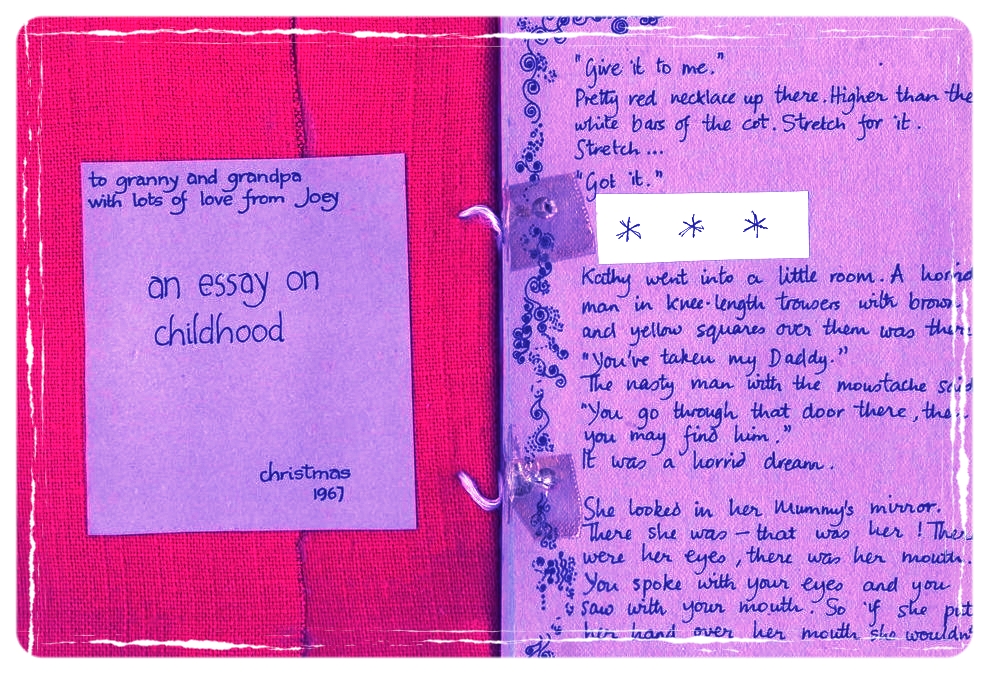 to granny and grandpa
with lots of love from Joey
an essay on
childhood
christmas
1967
"Give it to me."
Pretty red necklace up there. Higher than the
white bars of the cot. Stretch for it.
Stretch ...
"Got it."
* * *
Kathy went into a little room. A horrid
man in knee-length trousers with brown
and yellow squares over them was there
"You've taken my Daddy."
The nasty man with the moustache said
"You go through that door there, then
you may find him."
It was a horrid dream.
She looked in her Mummy's mirror.
There she was — that was her! There
were her eyes, there was her mouth.
You spoke with your eyes and you
saw with your mouth. So if she put
her hand over her mouth she wouldn't